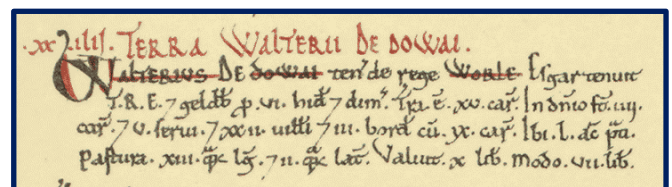 .XXIIII. TERRA WALTERII DE DOWAI.
WALTERIUS DE DOWAI ten' de rege WORLE. Esgar tenuit
T.R.E. ⁊ geldb̄ ꝑ .vi. hid' ⁊ dim'. Tr̃a .ē. xv. car̃. In dn̄io st̄ .iiii.
car̃. ⁊ v. serui. ⁊ xxii. uilli ⁊ iii. bord' cū .ix. car̃. Ibi .l. ac̄ p̃ti.
Pastura .xii. q̃ꝝ lg̃. ⁊ ii. q̃ꝝ lat̄. Valuit .x. lib̄. Modo .vii. lib̄.